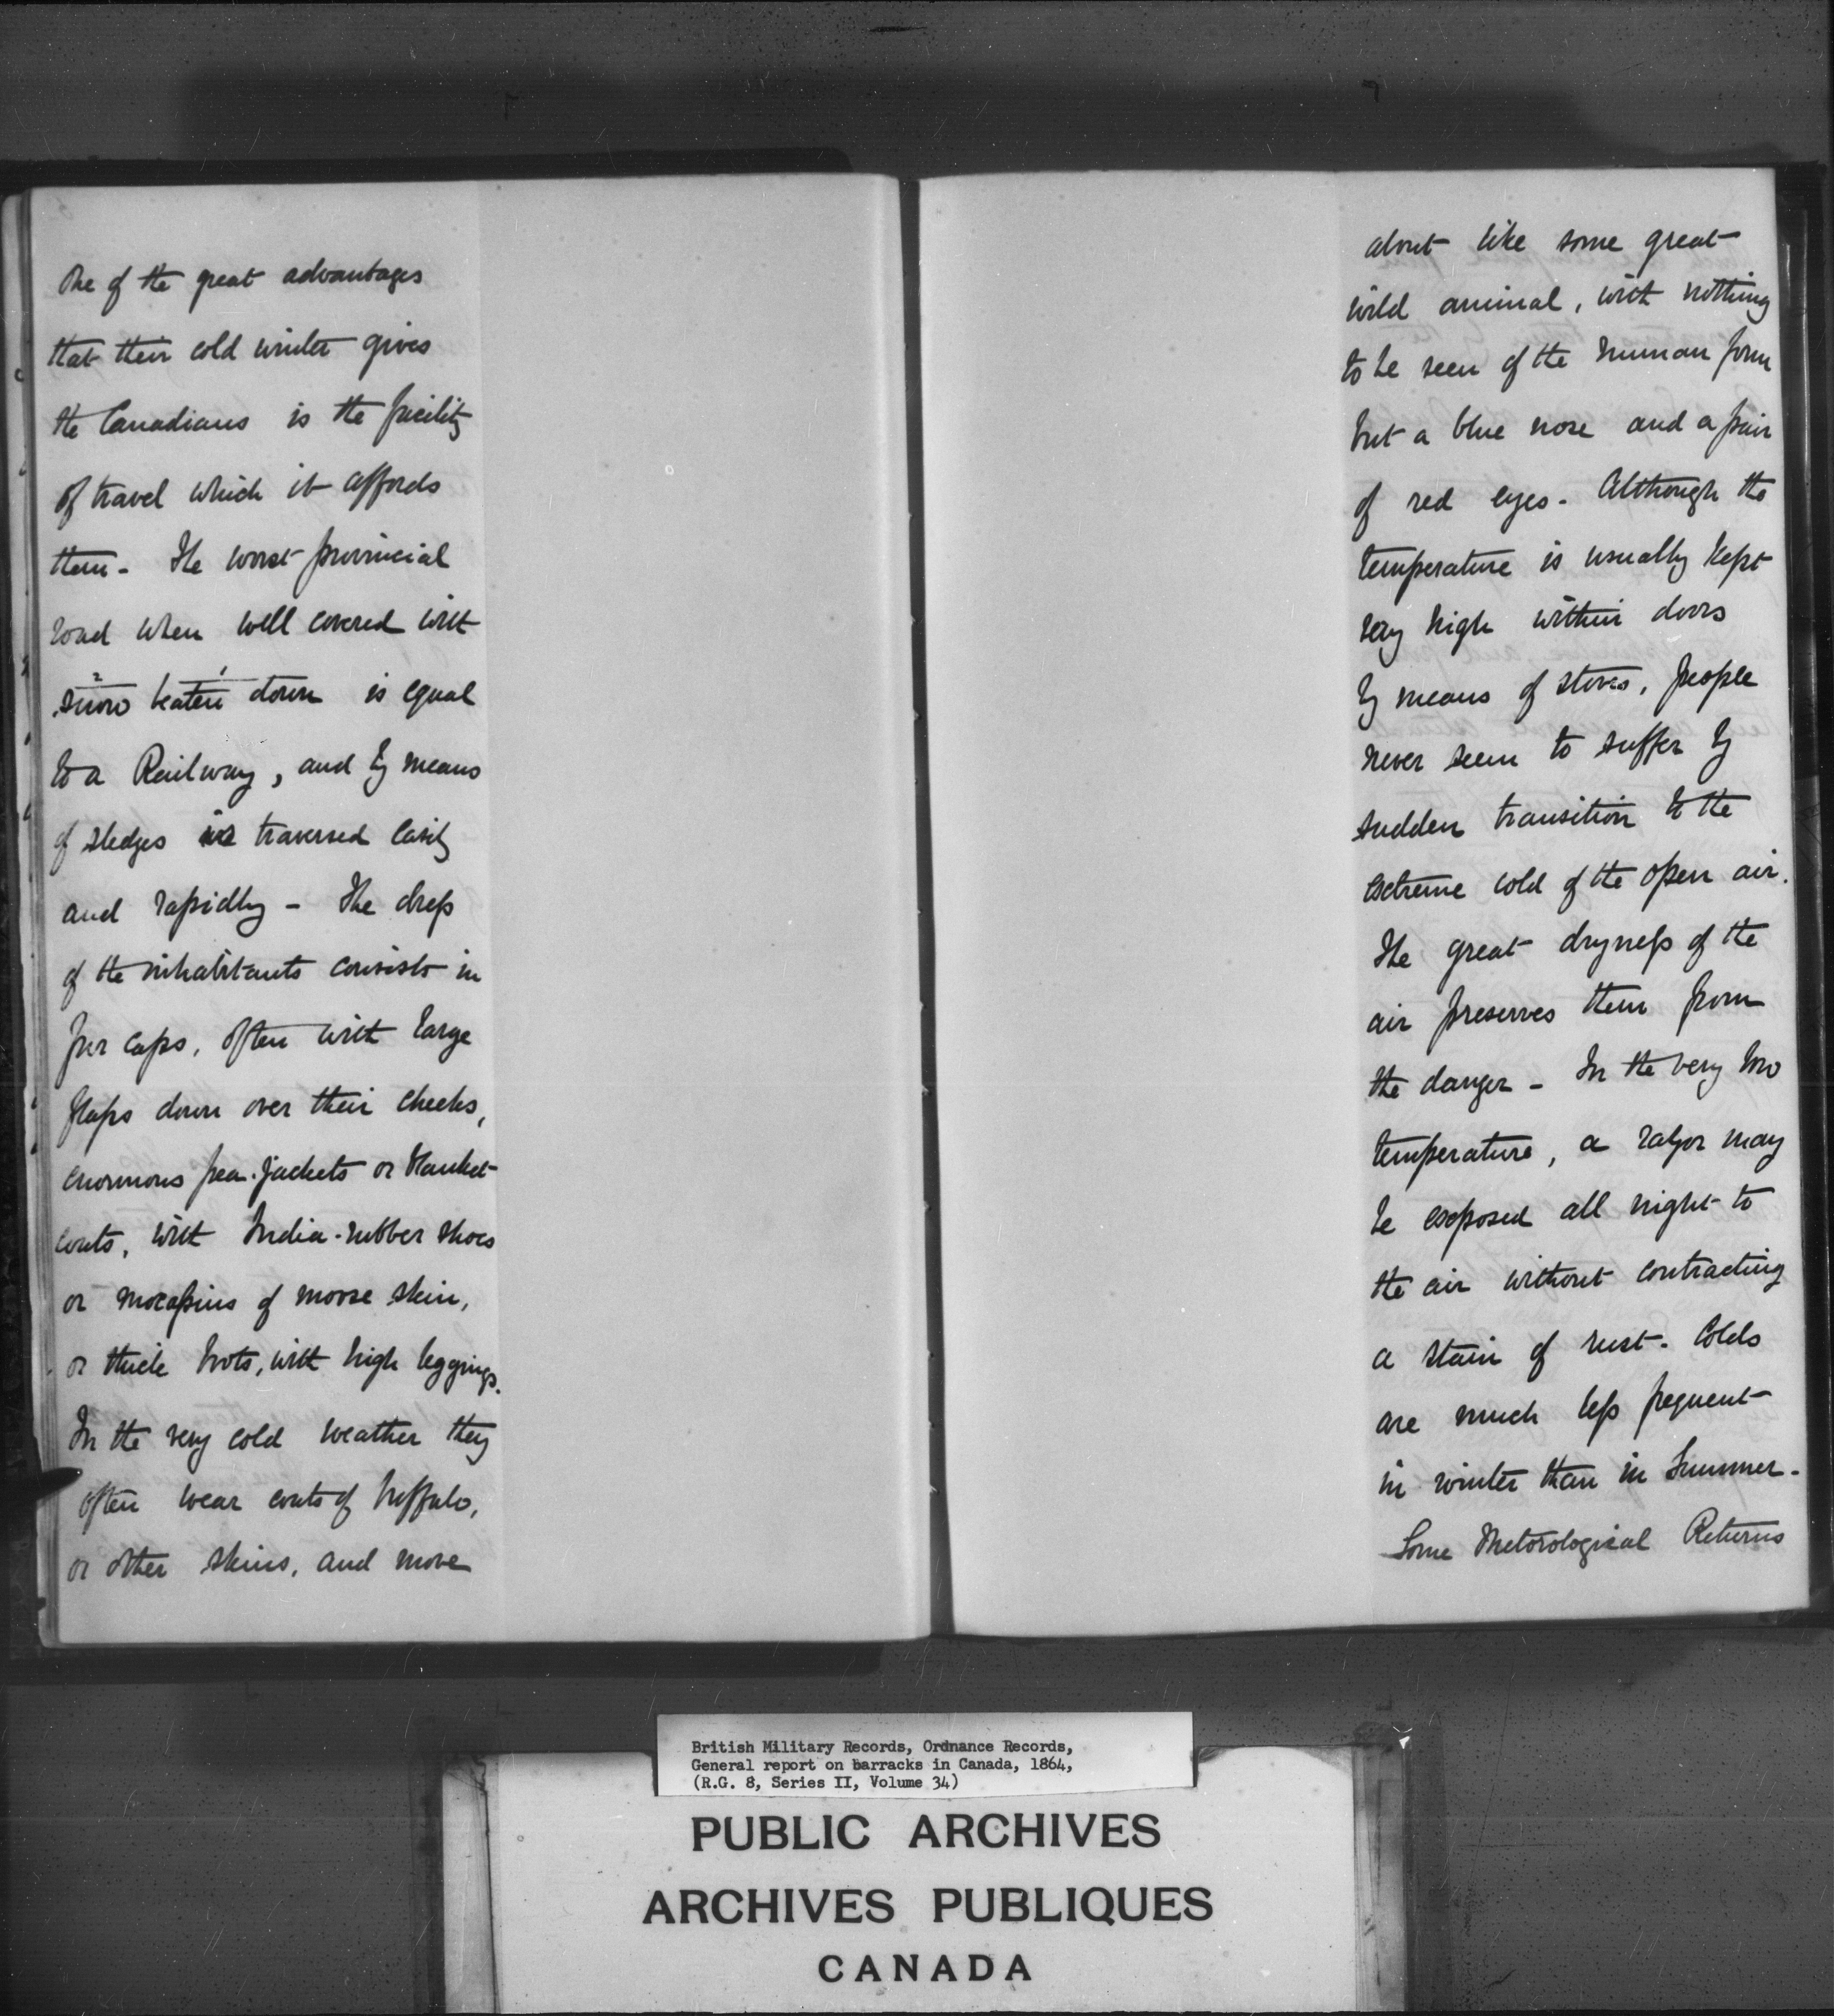 One of the great advantages
that their cold winter gives
the Canadians is the facility
of travel which it affords
them - The worst provincial
road when well covered with
2 1
snow beaten down is equal
to a Railway, and by means
of sledges is traversed easily
and rapidly - The dress
of the inhabitants consists in
fur caps, often with large
flaps down over their cheeks,
enormous pea-jackets or blanket-
coats, with India-rubber shoes
or mocassins of moose skin,
or thick boots, with high leggings.
In the very cold weather they
often wear coats of buffalo,
or other skins, and move
about like some great
wild animal, with nothing
to be seen of the human form
but a blue nose and a pair
of red eyes - Although the
temperature is usually kept
very high within doors
by means of stoves, people
never seem to suffer by
sudden transition to the
extreme cold of the open air.
The great dryness of the
air preserves them from
the danger - In the very low
temperature, a razor may
be exposed all night to
the air without contracting
a stain of rust - Colds
are much less frequent
in winter than in Summer -
Some Metorological Returns
British Military Records, Ordnance Records,
General report on barracks in Canada, 1864,
(R.G. 8, Series II, Volume 34)
PUBLIC ARCHIVES
ARCHIVES PUBLIQUES
CANADA